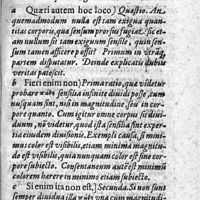 a Quæri autem hoc loco) Quæstio. An,
quemadmodum nulla est tam exigua quan-
titas corporis, qua sensum prorsus fugiat: sic et-
iam nullum sit tam exiguum sensile, quin
sensum tamen afficere possit? Primum in utramq́;
partem disputatur. Deinde explicatis dubijs
veritas patescit.
b Fieri enim non) Prima ratio, qua videtur
probare sensilia infinite diuidi posse, cum
quanta sum sint, nisi in magnitudine sensi in cor-
pore quanto. Cum igitur omne corpus sit diui-
duum, nō videtur, quod ista sensilia sint exper-
tia eiusdem diuisionis. Exempli causa, si mini-
mus color est visibilis, etiam minimū corpus
est visibile, quia nunquam color est sine cor-
pore subiecto. Consentaneum autē est minimū
colorem hærere in minimo etiam subiecto.
c Si enim ita non est,) Secunda. Si non sunt
semper diuidua illa cum magnitudi-